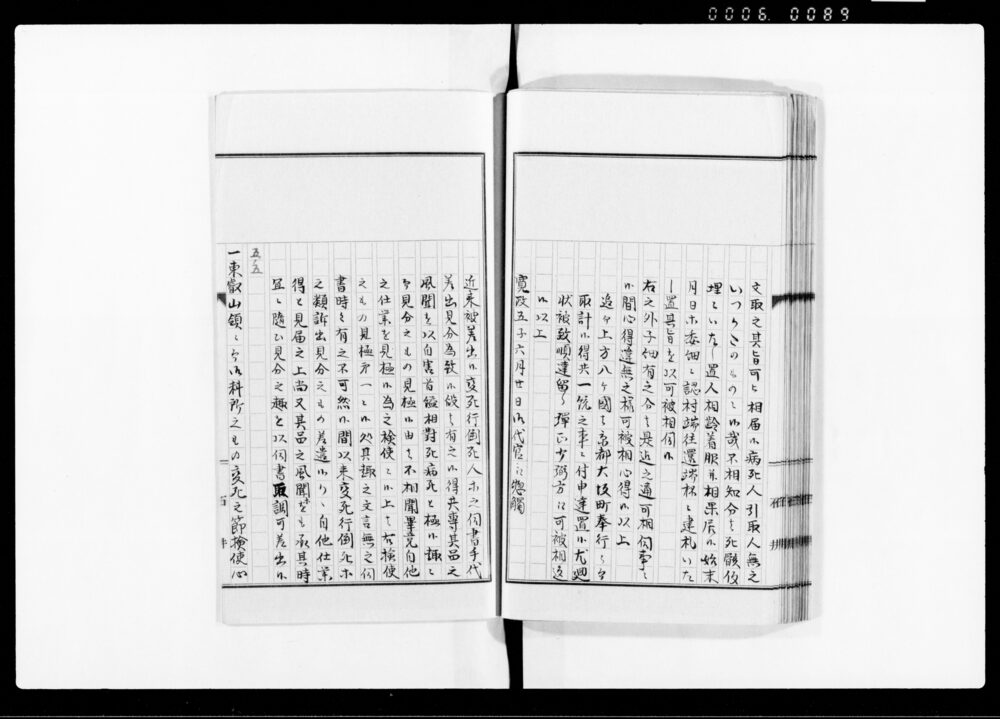 0006 0089
文取之其旨可申相届候病死人引取人無之
いつかたのものとも不相知分者死骸仮
埋いたし置人相齢着服並相果居候始末
月日等委細認村端往還端抔建札いた
し置其旨を以可被相伺候
右之外子細有之分者是迄之通可相伺事
候間心得違無之様可被相心得候以上
追而上方八ヶ國者京都大坂町奉行
取計候得共一統之事ニ付申達置候尤廻
状被致順達留り弾正少弼方江可被相返
候以上
寛政五子六月廿日御代官江惣觸
近来被差出候変死行倒死人等之伺書手代
差出見分為致候儀も有之候得共専其品之
風聞を以自害首縊相對死病死と極候
見分之もの見極候由者不相聞畢竟自他
之仕業を見極候為之検使候上者右検使
之もの見極第一と候処其趣之文言無之伺
書時々有之不可然候間以来変死行倒死等
之類訴出見分之もの差遣候ハヽ自他仕業
得と見届之上尚又其品之風聞等も承其時
宜ニ随ひ見分之趣を以伺書取調可差出候
五ノ五
一東叡山領御科所之もの変死之節検使心